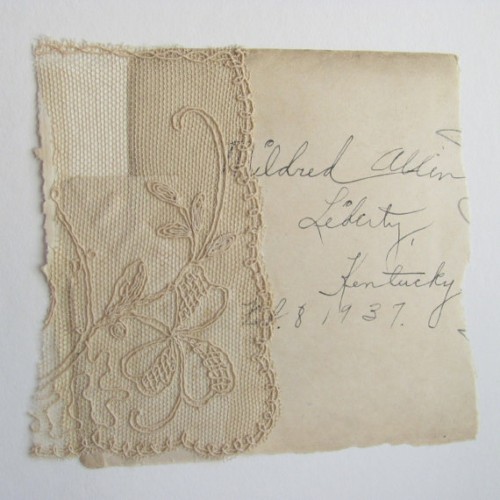 Mildred
Liberty,
Kentucky
8 1937.